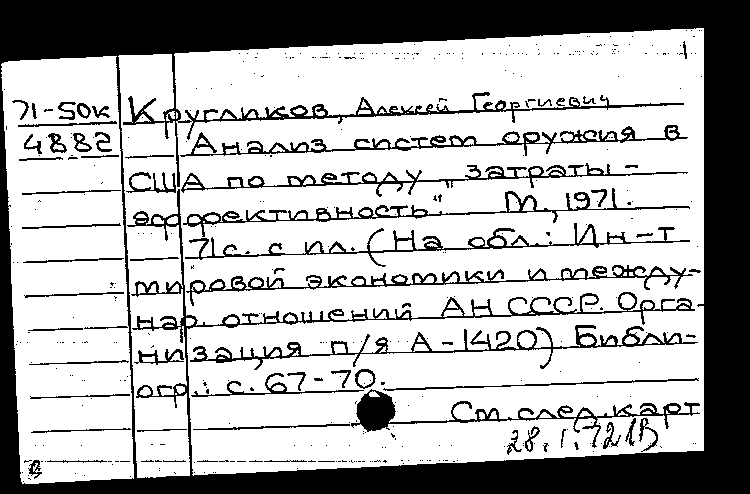 1
71-50к Кругликов, Алексей Георгиевич
4882 Анализ систем оружия в
США по методу „затраты-
эффективность“. М., 1971.
71с. с ил. (На обл.: Ин-т
мировой экономики и между-
нар. отношений АН СССР. Орга-
низация п/я А-1420) Библи-
огр.: с. 67-70.
См. след. карт
28.1.72
В